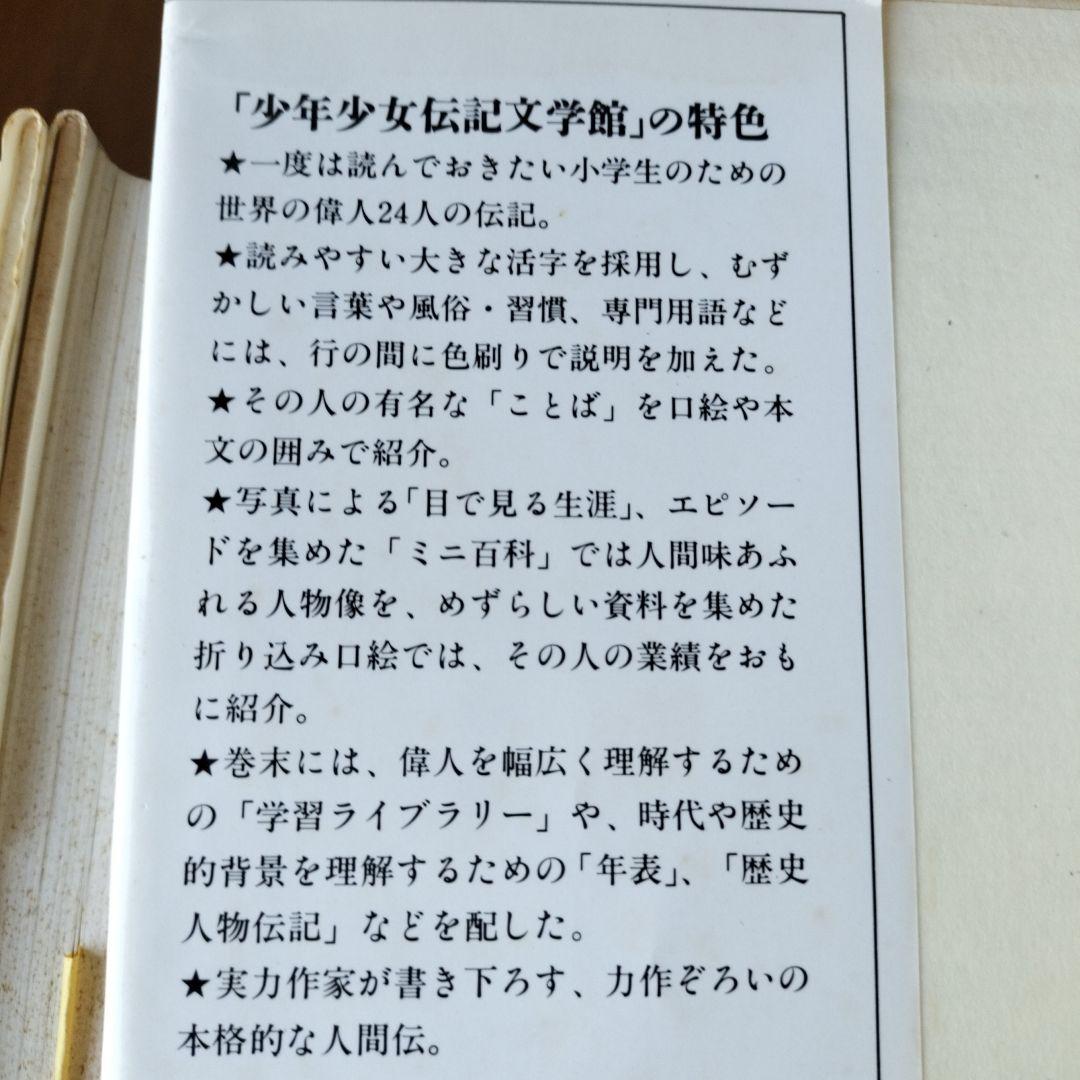 「少年少女伝記文学館」の特色
★一度は読んでおきたい小学生のための
世界の偉人24人の伝記。
★読みやすい大きな活字を採用し、むず
かしい言葉や風俗・習慣、専門用語など
には、行の間に色刷りで説明を加えた。
★その人の有名な「ことば」を口絵や本
文の囲みで紹介。
★写真による「目で見る生涯」、エピソー
ドを集めた「ミニ百科」では人間味あふ
れる人物像を、めずらしい資料を集めた
折り込み口絵では、その人の業績をおも
に紹介。
★巻末には、偉人を幅広く理解するため
の「学習ライブラリー」や、時代や歴史
的背景を理解するための「年表」、「歴史
人物伝記」などを配した。
★実力作家が書き下ろす、力作ぞろいの
本格的な人間伝。